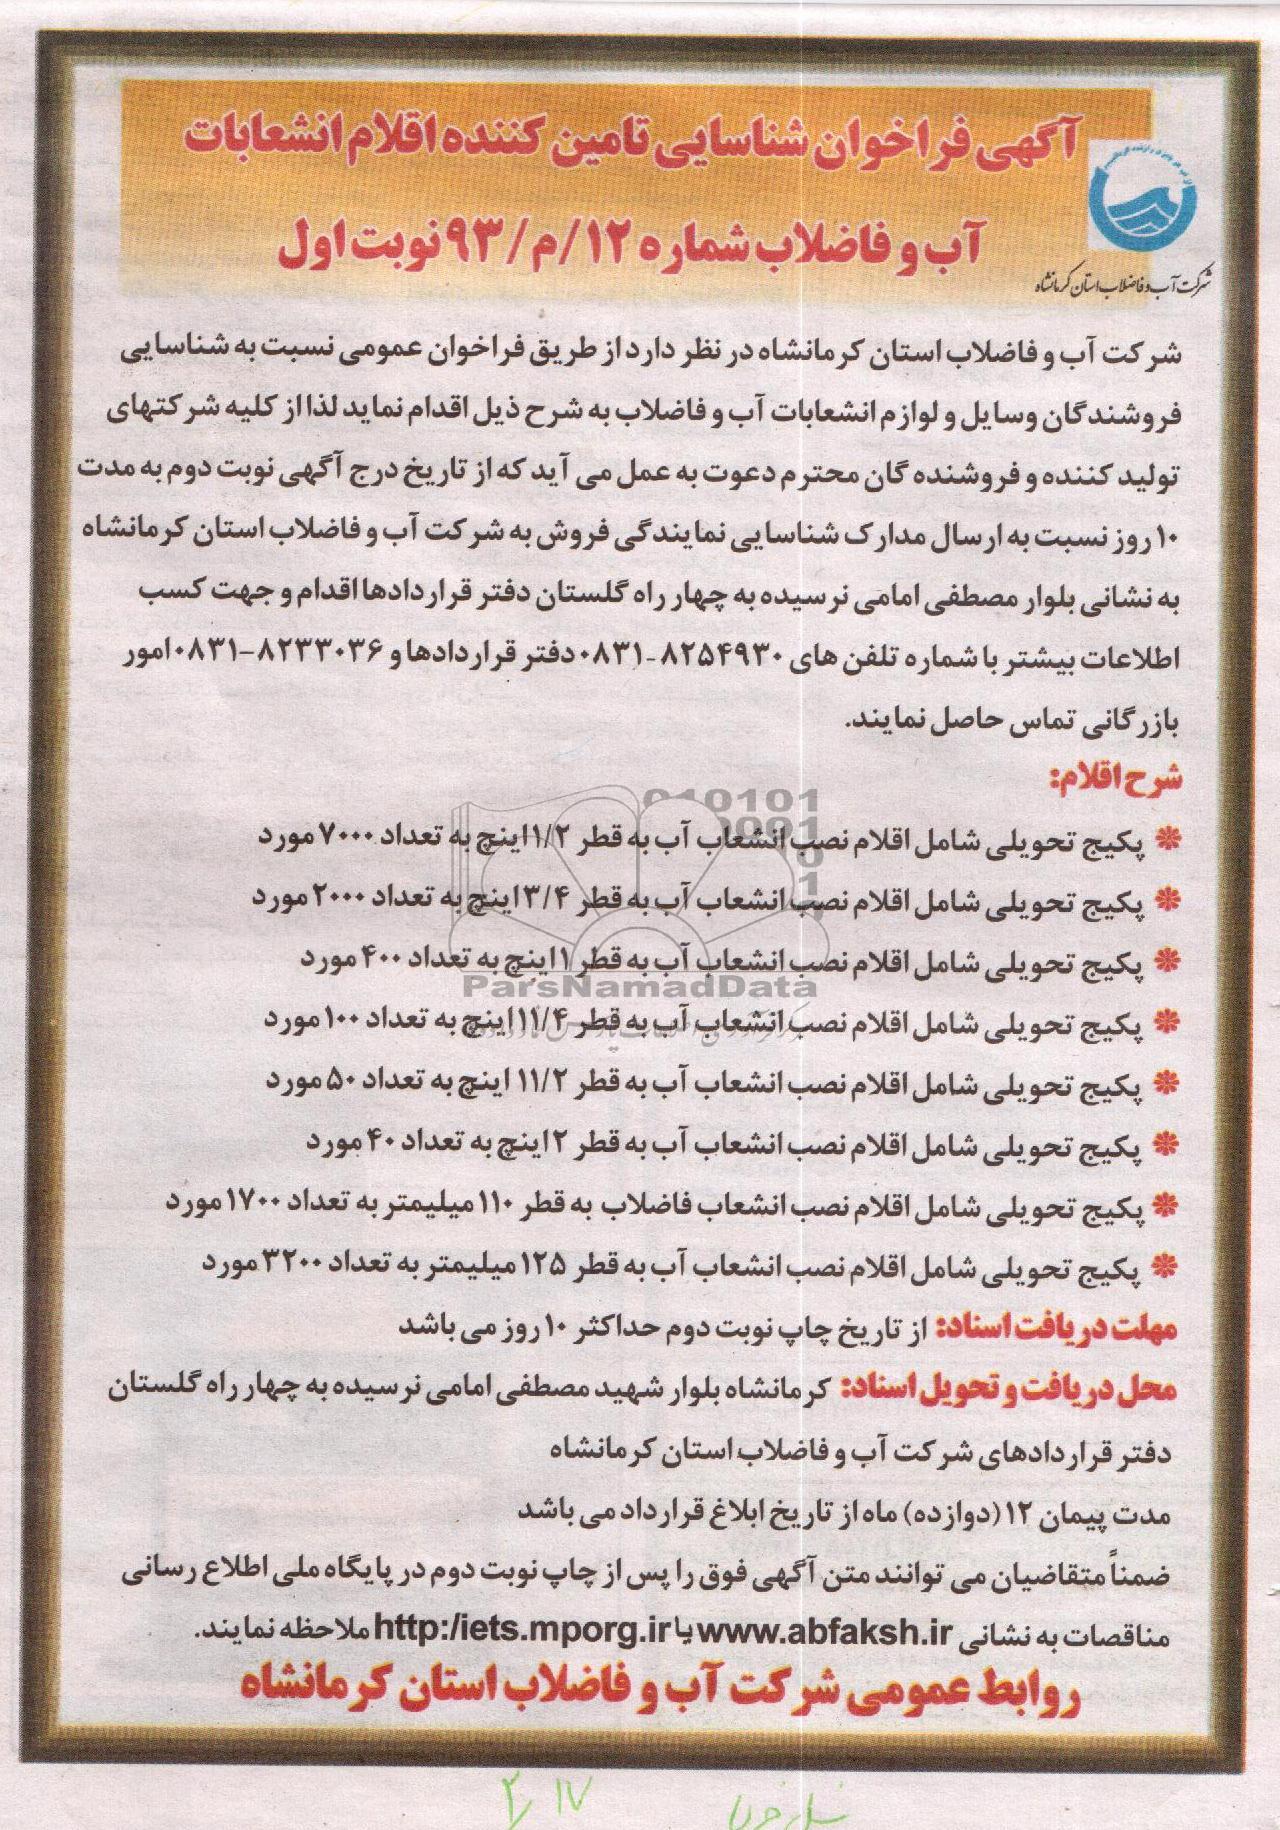 آگهی فراخوان شناسایی تامین کننده اقلام انشعابات
آب و فاضلاب شماره ۱۲/م/۹۳ نوبت اول
شرکت آب و فاضلاب استان کرمانشاه
شرکت آب و فاضلاب استان کرمانشاه در نظر دارد از طریق فراخوان عمومی نسبت به شناسایی
فروشندگان وسایل و لوازم انشعابات آب و فاضلاب به شرح ذیل اقدام نماید لذا از کلیه شرکتهای
تولید کننده و فروشنده گان محترم دعوت به عمل می آید که از تاریخ درج آگهی نوبت دوم به مدت
۱۰ روز نسبت به ارسال مدارک شناسایی نمایندگی فروش به شرکت آب و فاضلاب استان کرمانشاه
به نشانی بلوار مصطفی امامی نرسیده به چهار راه گلستان دفتر قراردادها اقدام و جهت کسب
اطلاعات بیشتر با شماره تلفن های ۸۲۵۴۹۳۰-۰۸۳۱ دفتر قراردادها و ۸۲۳۳۰۳۶-۰۸۳۱ امور
بازرگانی تماس حاصل نمایند.
شرح اقلام:
پکیج تحویلی شامل اقلام نصب انشعاب آب به قطر ۱/۲ اینچ به تعداد ۷۰۰۰ مورد
پکیج تحویلی شامل اقلام نصب انشعاب آب به قطر ۳/۴ اینچ به تعداد ۲۰۰۰ مورد
پکیج تحویلی شامل اقلام نصب انشعاب آب به قطر ۱ اینچ به تعداد ۴۰۰ مورد
پکیج تحویلی شامل اقلام نصب انشعاب آب به قطر ۱۱/۴ اینچ به تعداد ۱۰۰ مورد
پکیج تحویلی شامل اقلام نصب انشعاب آب به قطر ۱۱/۲ اینچ به تعداد ۵۰ مورد
پکیج تحویلی شامل اقلام نصب انشعاب آب به قطر ۲ اینچ به تعداد ۴۰ مورد
پکیج تحویلی شامل اقلام نصب انشعاب فاضلاب به قطر ۱۱۰ میلیمتر به تعداد ۱۷۰۰ مورد
پکیج تحویلی شامل اقلام نصب انشعاب آب به قطر ۱۲۵ میلیمتر به تعداد ۳۲۰۰ مورد
مهلت دریافت اسناد: از تاریخ چاپ نوبت دوم حداکثر ۱۰ روز می باشد
محل دریافت و تحویل اسناد: کرمانشاه بلوار شهید مصطفی امامی نرسیده به چهار راه گلستان
دفتر قراردادهای شرکت آب و فاضلاب استان کرمانشاه
مدت پیمان ۱۲ (دوازده) ماه از تاریخ ابلاغ قرارداد می باشد
ضمناً متقاضیان می توانند متن آگهی فوق را پس از چاپ نوبت دوم در پایگاه ملی اطلاع رسانی
مناقصات به نشانی www.abfaksh.ir یا http:/iets.mporg.ir ملاحظه نمایند.
روابط عمومی شرکت آب و فاضلاب استان کرمانشاه
ParsNamadData